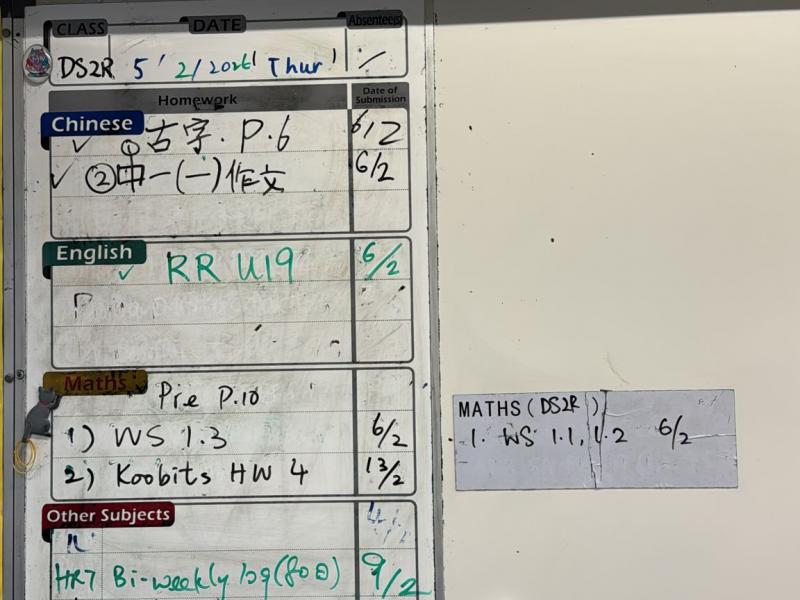 CLASS DATE Absentee(s)
DS2R 5/2/2026 Thur /
Homework Date of Submission
Chinese
✓ ① 古字. P.6 6/2
✓ ② 中一(一)作文 6/2
English
✓ RR U19 6/2
Maths
Pie P.10
1) WS 1.3 6/2
2) Koobits HW 4 13/2
Other Subjects
HRT Bi-weekly log(80日) 9/2
MATHS (DS2R)
1. WS 1.1, 1.2 6/2